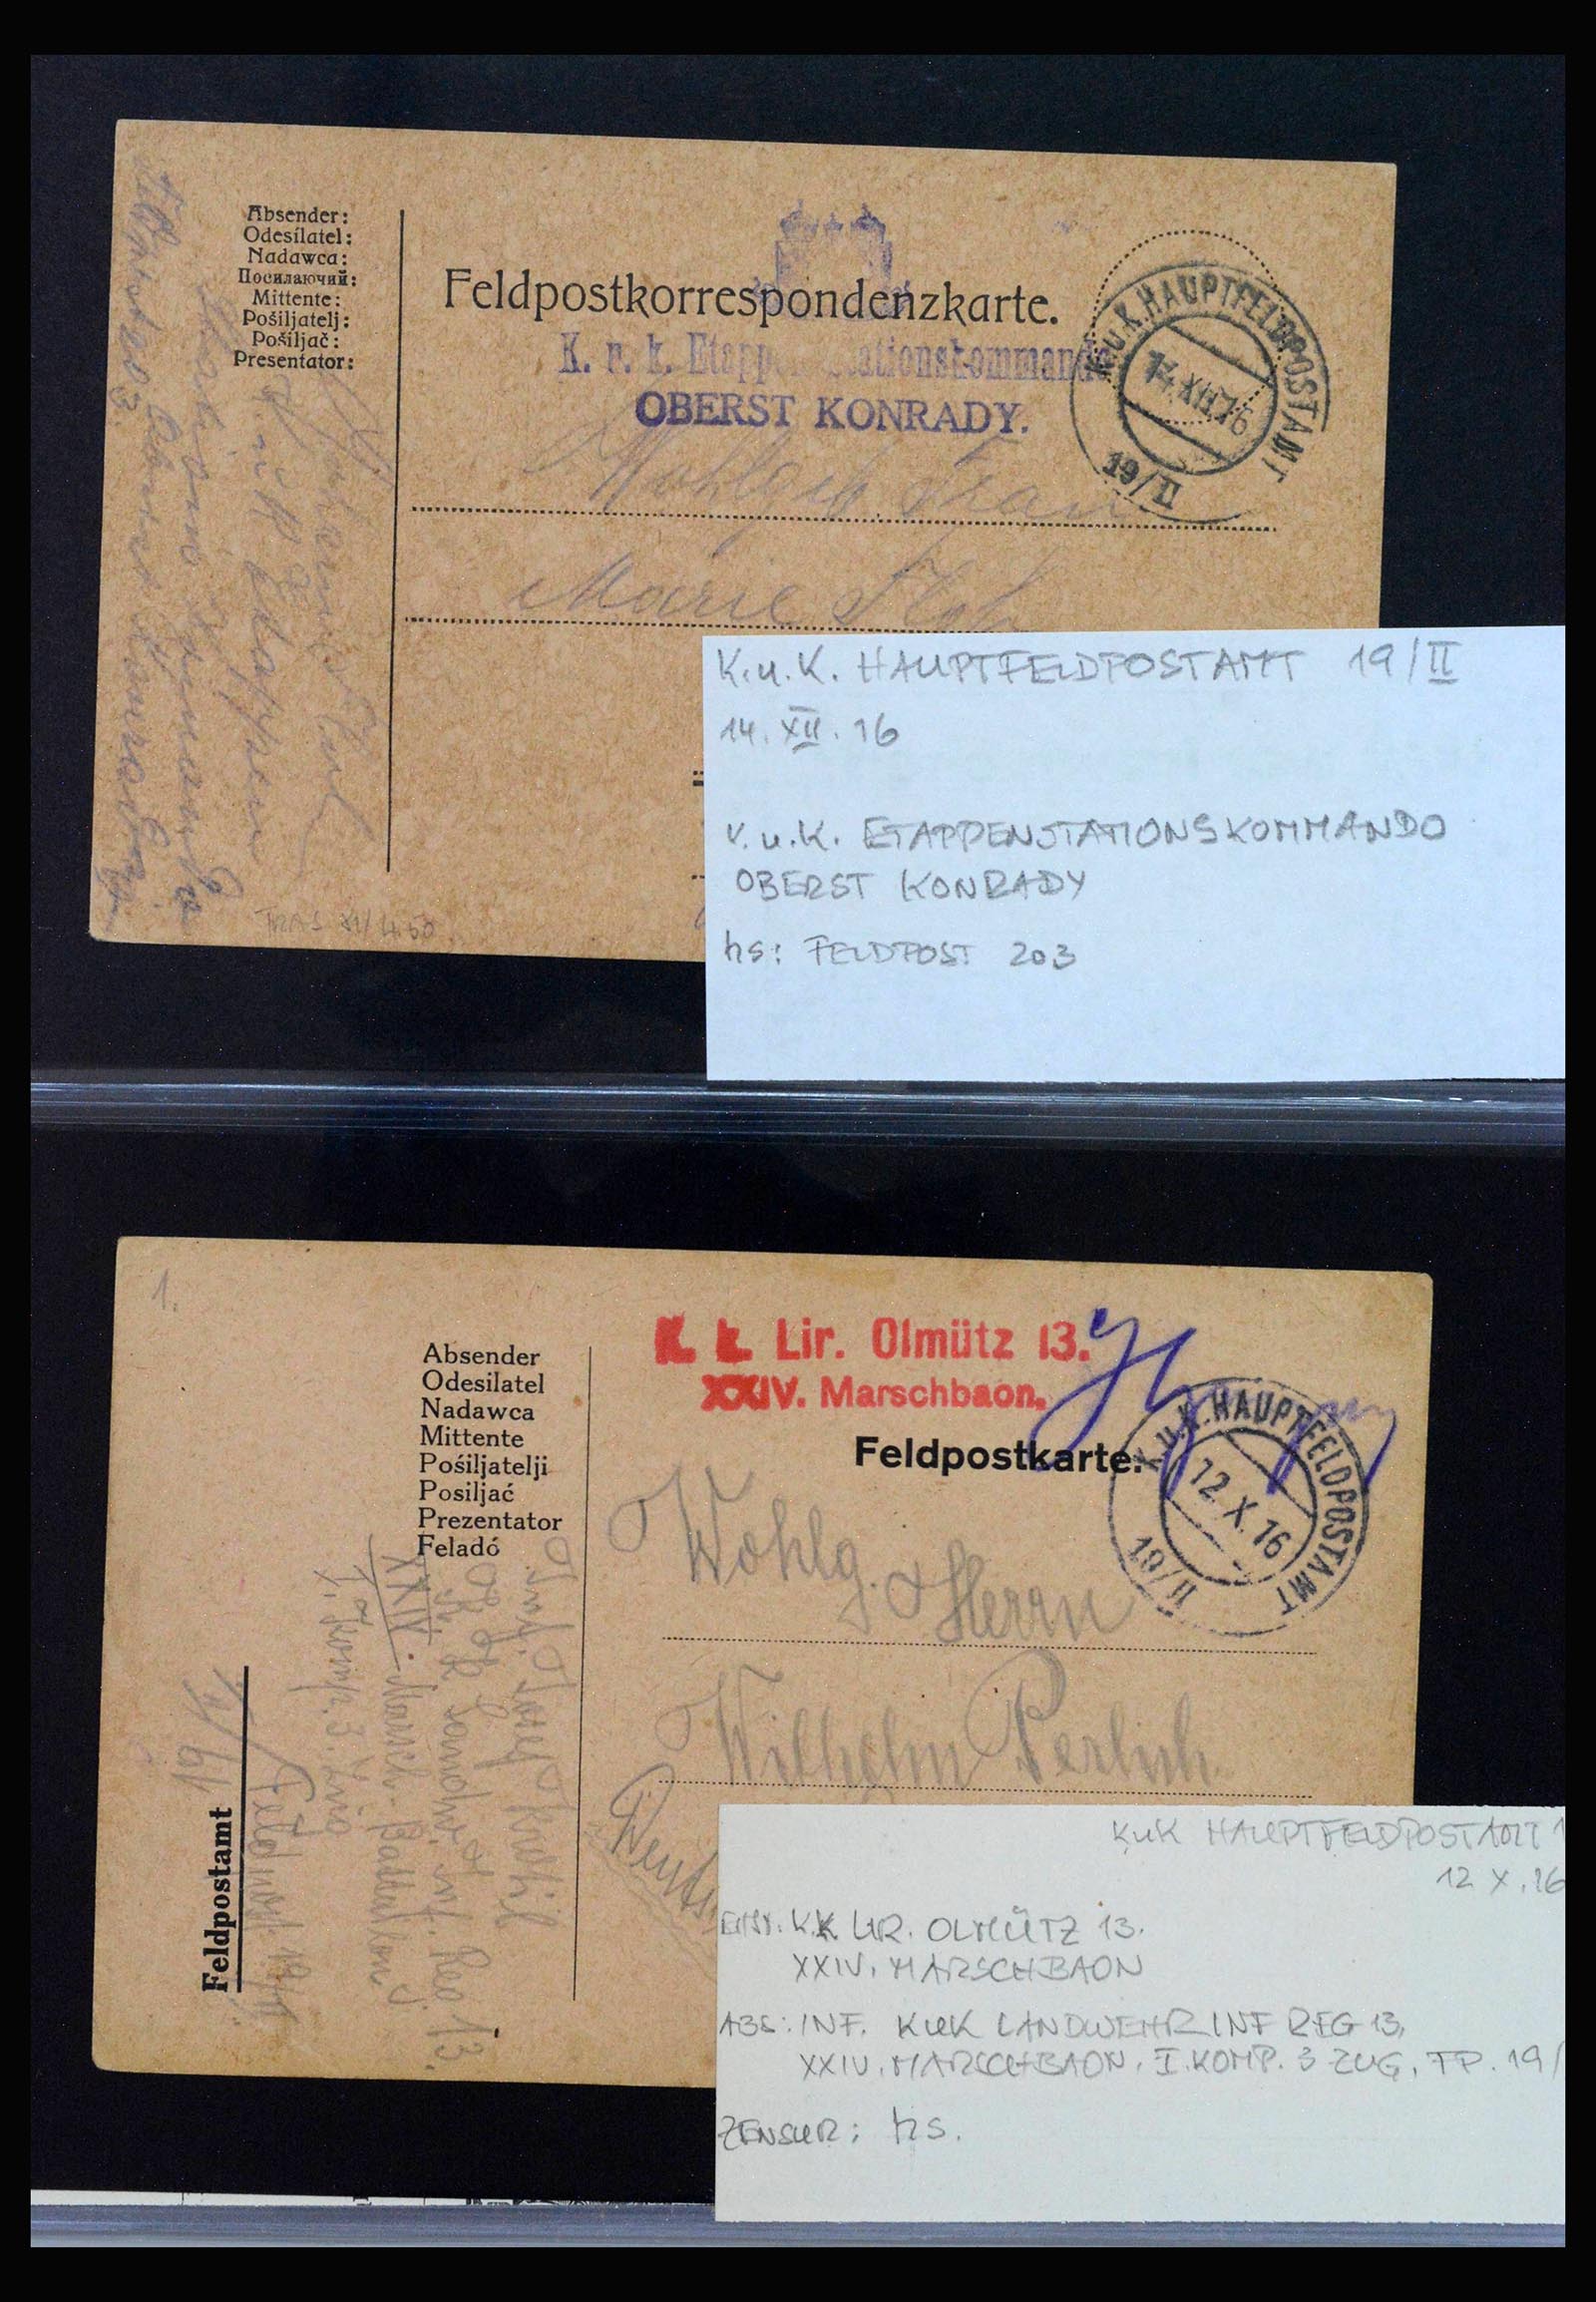 Absender:
Odesílatel:
Nadawca:
Посилаючий:
Mittente:
Pošiljatelj:
Pošiljač:
Presentator:
Feldpostkorrespondenzkarte.
K. u. k. Etappen Stationskommando
OBERST KONRADY.
K.u.K. HAUPTFELDPOSTAMT
14.XII.16
19/II
Wohlgeb. Frau
Marie
K. u. K. Etappen
TRAS XI/4.50
K.u.K. HAUPTFELDPOSTAMT 19/II
14. XII. 16
K.u.K. ETAPPENSTATIONSKOMMANDO
OBERST KONRADY
hs: FELDPOST 203
1.
Absender
Odesilatel
Nadawca
Mittente
Pośiljatelji
Posiljać
Prezentator
Feladó
K. k. Lir. Olmütz 13.
XXIV. Marschbaon.
Feldpostkarte.
K.u.K. HAUPTFELDPOSTAMT
12. X. 16
19/II
Wohlg. Herrn
Wilhelm Perlich
Inf. Josef
K. K. Landw. Inf. Reg. 13.
XXIV. Marsch-Battallon
I. Komp. 3. Zug
Feldpost. 19/II
Feldpostamt
19/II
KuK HAUPTFELDPOSTAMT 1
12 X. 16
EINH. K.K. LIR. OLMÜTZ 13.
XXIV. MARSCHBAON
ABS: INF. KuK LANDWEHR INF REG 13,
XXIV. MARSCHBAON. I. KOMP. 3 ZUG, FP. 19/
ZENSUR: hs.